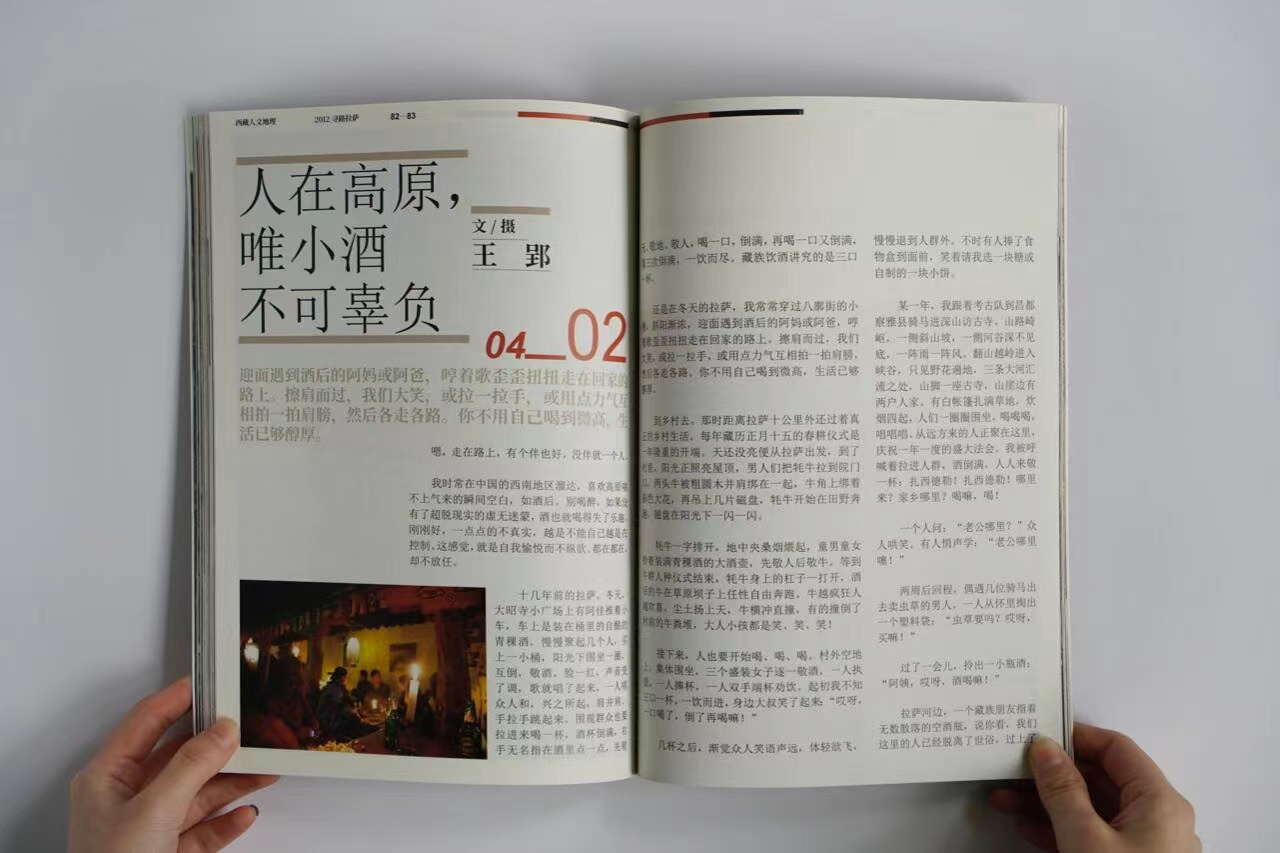 西藏人文地理
2012 寻路拉萨
82—83
人在高原，
唯小酒
不可辜负
文/摄
王 郢
04—02
迎面遇到酒后的阿妈或阿爸，哼着歌歪歪扭扭走在回家的
路上。擦肩而过，我们大笑，或拉一拉手，或用点力气互
相拍一拍肩膀，然后各走各路。你不用自己喝到微高，生
活已够醇厚。
嗯，走在路上，有个伴也好，没伴就一个人。
我时常在中国的西南地区溜达，喜欢高原喘
不上气来的瞬间空白，如酒后。别喝醉，如果没
有了超脱现实的虚无迷蒙，酒也就喝得失了乐趣。
刚刚好，一点点的不真实，越是不能自己越是在
控制。这感觉，就是自我愉悦而不纵欲。都在都在，
却不放任。
十几年前的拉萨。冬天，
大昭寺小广场上有阿佳推着小
车，车上是装在桶里的自酿的
青稞酒。慢慢聚起几个人，买
上一小桶，阳光下围坐一圈，
互倒，敬酒。脸一红，声音变
了调，歌就唱了起来，一人唱
众人和，兴之所起，肩并肩，
手拉手跳起来。围观群众也要
拉进来喝一杯，酒杯倒满，右
手无名指在酒里点一点，先敬
天、敬地、敬人，喝一口，倒满，再喝一口又倒满，
第三次倒满，一饮而尽。藏族饮酒讲究的是三口
一杯。
还是在冬天的拉萨，我常常穿过八廓街的小
斜阳渐浓，迎面遇到酒后的阿妈或阿爸，哼
着歌歪歪扭扭走在回家的路上。擦肩而过，我们
大笑，或拉一拉手，或用点力气互相拍一拍肩膀，
然后各走各路。你不用自己喝到微高，生活已够
醇厚。
到乡村去。那时距离拉萨十公里外还过着真
正的乡村生活。每年藏历正月十五的春耕仪式是
一年隆重的开端。天还没亮便从拉萨出发，到了
村里，阳光正照亮屋顶，男人们把牦牛拉到院门
口，两头牛被粗圆木并肩绑在一起，牛角上绑着
彩色大花，再吊上几片磁盘，牦牛开始在田野奔
跑，磁盘在阳光下一闪一闪。
牦牛一字排开，地中央桑烟煨起，童男童女
着装满青稞酒的大酒壶，先敬人后敬牛。等到
牛耕人种仪式结束，牦牛身上的杠子一打开，酒
后的牛在草原坝子上任性自由奔跑。牛越疯狂人
越欢喜。尘土扬上天，牛横冲直撞，有的撞倒了
村前的牛粪堆，大人小孩都是笑、笑、笑！
接下来，人也要开始喝、喝、喝。村外空地
上，集体围坐，三个盛装女子逐一敬酒，一人执
壶，一人捧杯，一人双手端杯劝饮，起初我不知
三口一杯，一饮而进，身边大叔笑了起来：“哎呀，
一口喝了，倒了再喝嘛！”
几杯之后，渐觉众人笑语声远，体轻欲飞，
慢慢退到人群外。不时有人捧了食
物盒到面前，笑着请我选一块糖或
自制的一块小饼。
某一年，我跟着考古队到昌都
察雅县骑马进深山访古寺。山路崎
岖，一侧斜山坡，一侧河谷深不见
底，一阵雨一阵风。翻山越岭进入
峡谷，只见野花遍地，三条大河汇
流之处，山脚一座古寺，山崖边有
两户人家。有白帐篷扎满草地，炊
烟四起，人们一圈圈围坐，喝喝喝，
唱唱唱。从远方来的人正聚在这里，
庆祝一年一度的盛大法会。我被呼
喊着拉进人群，酒倒满，人人来敬
一杯：扎西德勒！扎西德勒！哪里
来？家乡哪里？喝嘛，喝！
一个人问：“老公哪里？”众
人哄笑。有人悄声学：“老公哪里
噻！”
两周后回程，偶遇几位骑马出
去卖虫草的男人，一人从怀里掏出
一个塑料袋：“虫草要吗？哎呀，
买嘛！”
过了一会儿，拎出一小瓶酒：
“阿姨，哎呀，酒喝嘛！”
拉萨河边，一个藏族朋友指着
无数散落的空酒瓶，说你看，我们
这里的人已经脱离了世俗，过上了